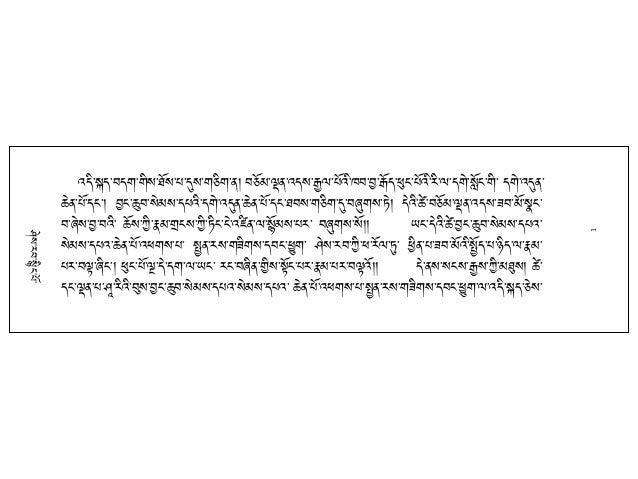 འདི་སྐད་བདག་གིས་ཐོས་པ་དུས་གཅིག་ན། བཅོམ་ལྡན་འདས་རྒྱལ་པོའི་ཁབ་བྱ་རྒོད་ཕུང་པོའི་རི་ལ་དགེ་སློང་གི་ དགེ་འདུན་
ཆེན་པོ་དང་། བྱང་ཆུབ་སེམས་དཔའི་དགེ་འདུན་ཆེན་པོ་དང་ཐབས་གཅིག་ཏུ་བཞུགས་ཏེ། དེའི་ཚེ་བཅོམ་ལྡན་འདས་ཟབ་མོ་སྣང་
བ་ཞེས་བྱ་བའི་ ཆོས་ཀྱི་རྣམ་གྲངས་ཀྱི་ཏིང་ངེ་འཛིན་ལ་སྙོམས་པར་ བཞུགས་སོ།། ཡང་དེའི་ཚེ་བྱང་ཆུབ་སེམས་དཔའ་
སེམས་དཔའ་ཆེན་པོ་འཕགས་པ་ སྤྱན་རས་གཟིགས་དབང་ཕྱུག་ ཤེས་རབ་ཀྱི་ཕ་རོལ་ཏུ་ ཕྱིན་པ་ཟབ་མོའི་སྤྱོད་པ་ཉིད་ལ་རྣམ་
པར་བལྟ་ཞིང་། ཕུང་པོ་ལྔ་དེ་དག་ལ་ཡང་ རང་བཞིན་གྱིས་སྟོང་པར་རྣམ་པར་བལྟའོ།། དེ་ནས་སངས་རྒྱས་ཀྱི་མཐུས། ཚེ་
དང་ལྡན་པ་ཤཱ་རིའི་བུས་བྱང་ཆུབ་སེམས་དཔའ་སེམས་དཔའ་ ཆེན་པོ་འཕགས་པ་སྤྱན་རས་གཟིགས་དབང་ཕྱུག་ལ་འདི་སྐད་ཅེས་
ཤེས་རབ་སྙིང་པོ་